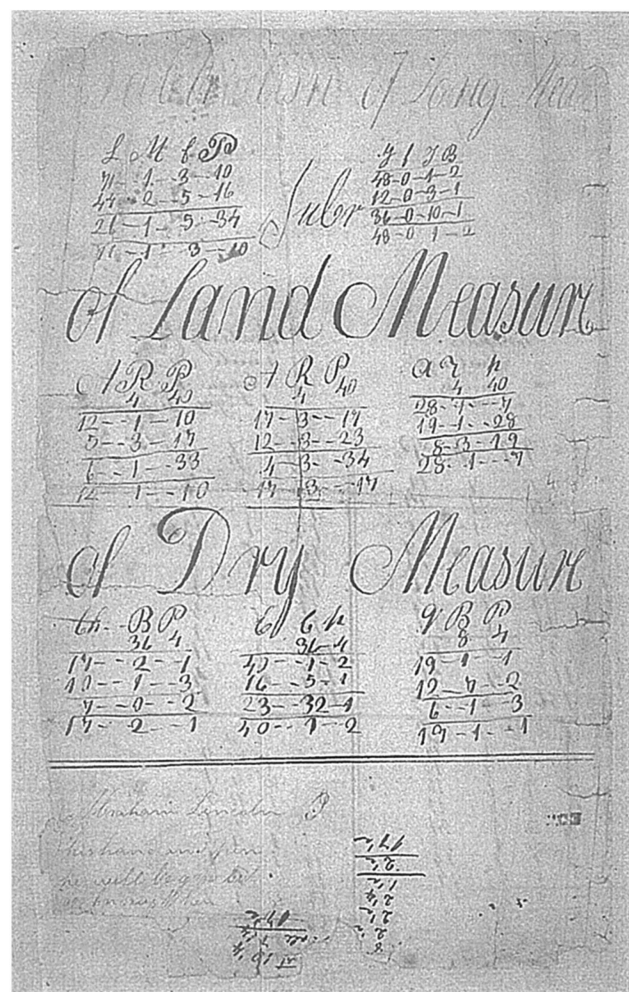 of Long Mea
L M f P
71--1--3--10
44--2--5--16
21--1--5--34
71--1--3--10
Subr
y f J B
48-0--1-2
12-0--3-1
36-0-10-1
48-0--1--2
of Land Measure
A R P
4 40
12--1--10
5--3--17
6--1--33
12--1--10
A R P
4 40
17--3--17
12--3--23
4--3--34
17--3--17
a r p
4 40
28--1--7
19--1--28
8-3-19
28--1--7
of Dry Measure
Ch.. B P
36 4
17--2--1
10--1--3
7--0--2
17--2--1
C C p
36-4
40--1-2
16--5-1
23--32-1
40--1--2
q B P
8 4
19-1--1
12--7--2
6--1--3
19-1--1
Abraham Lincoln
his hand and pen
he will be good but